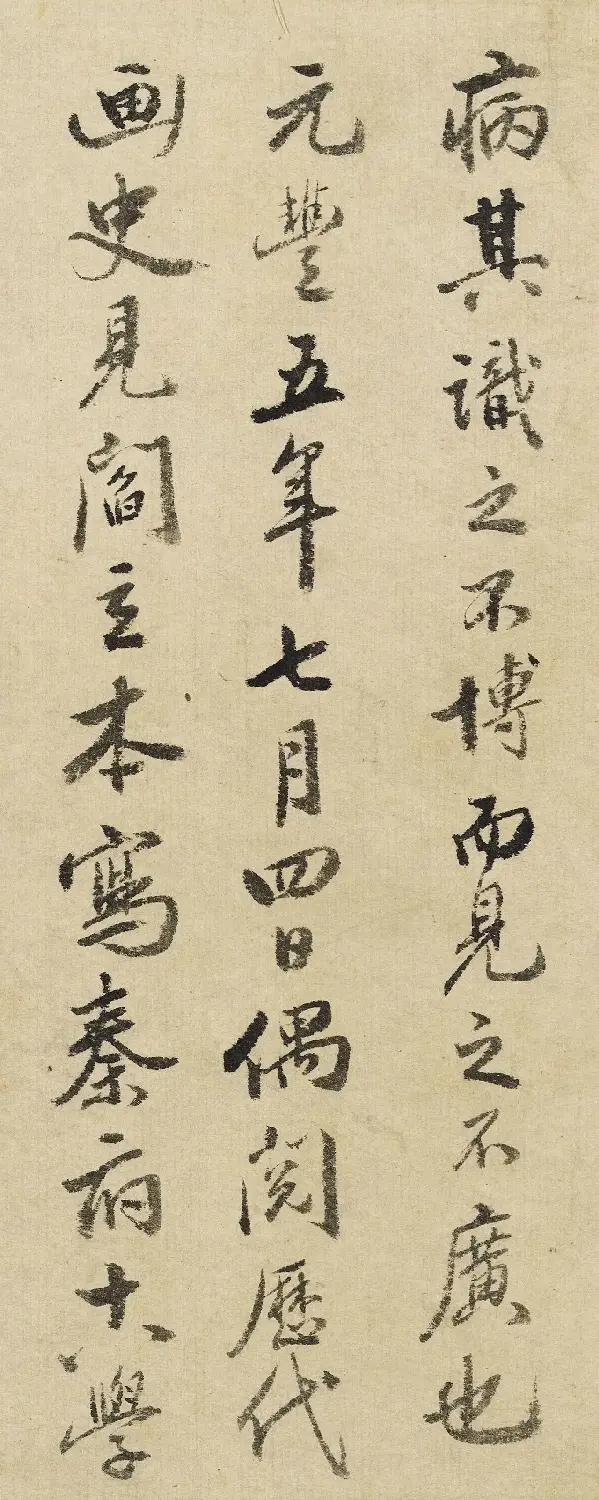 病其識之不博而見之不廣也
元豐五年七月四日偶閱歷代
画史見閻立本寫秦府十八學